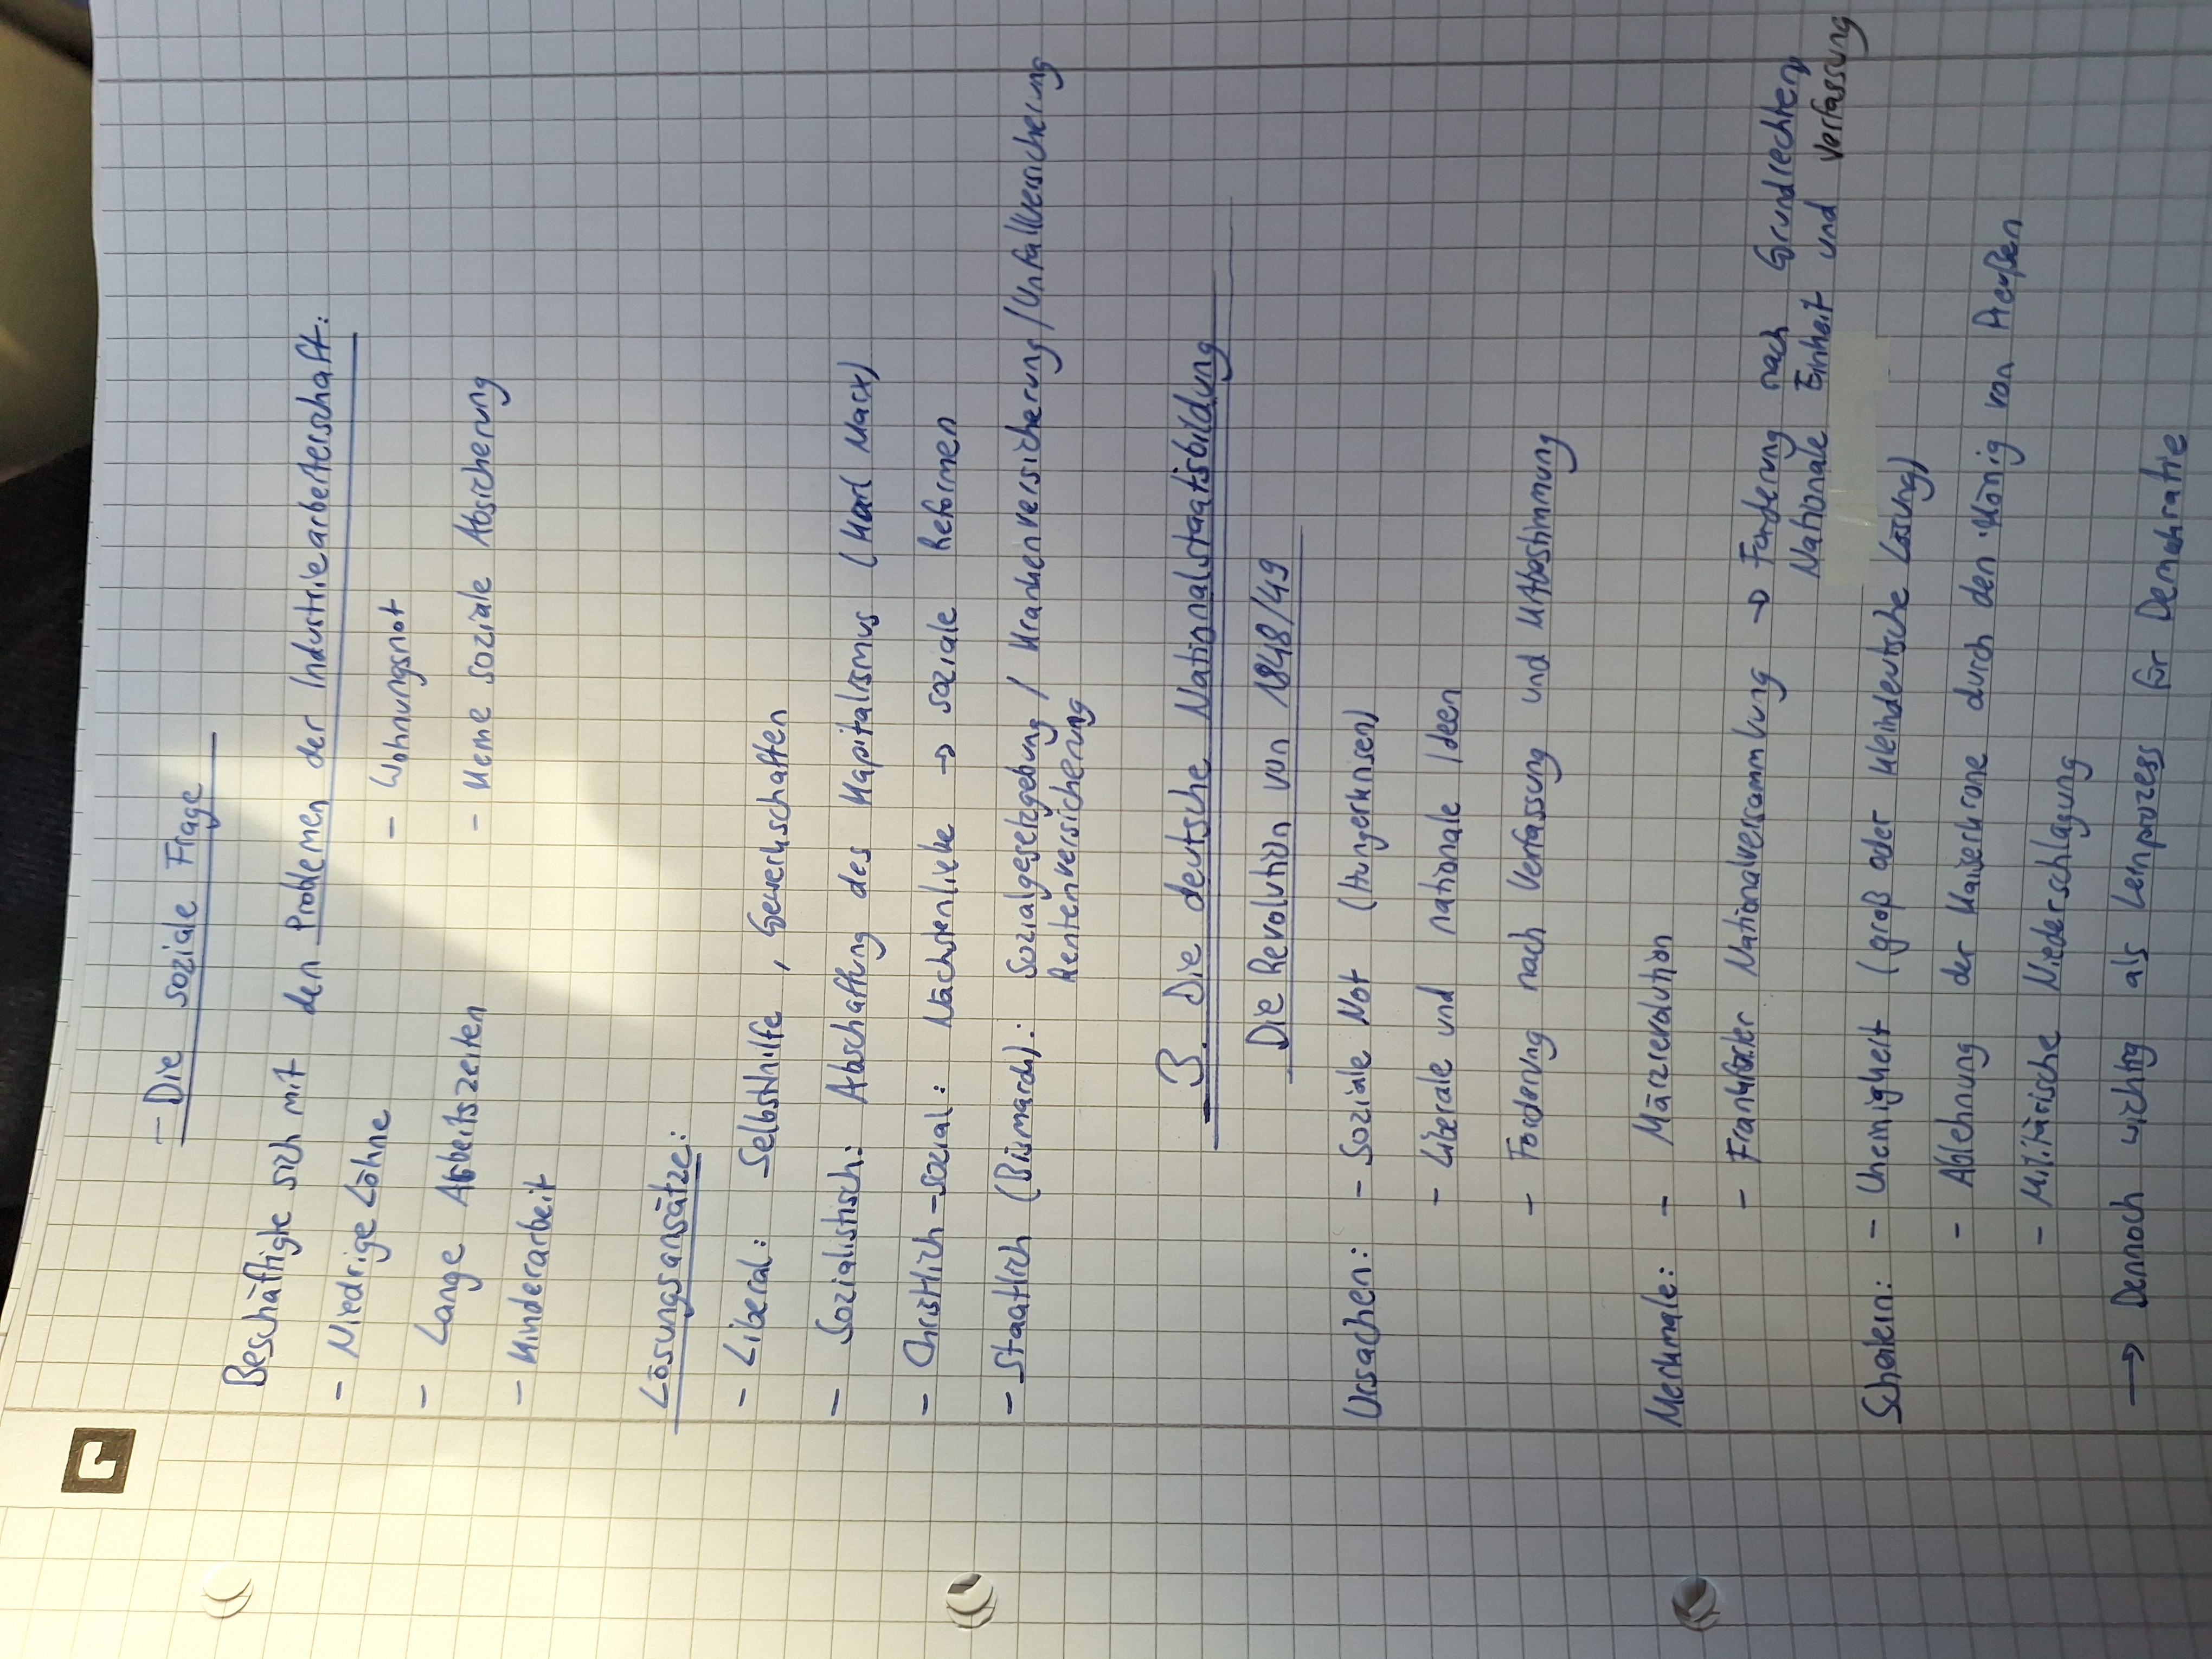 - Die soziale Frage
Beschäftigte sich mit den Problemen der Industriearbeiterschaft:
- Niedrige Löhne - Wohnungsnot
- Lange Arbeitszeiten - Keine soziale Absicherung
- Kinderarbeit
Lösungsansätze:
- Liberal: Selbsthilfe, Gewerkschaften
- Sozialistisch: Abschaffung des Kapitalismus (Karl Marx)
- Christlich-sozial: Nächstenliebe → soziale Reformen
- Staatlich (Bismarck): Sozialgesetzgebung / Krankenversicherung / Unfallversicherung
Rentenversicherung
3. Die deutsche Nationalstaatsbildung
Die Revolution von 1848/49
Ursachen: - Soziale Not (Hungerkrisen)
- Liberale und nationale Ideen
- Forderung nach Verfassung und Mitbestimmung
Merkmale: - Märzrevolution
- Frankfurter Nationalversammlung → Forderung nach Grundrechten,
Nationale Einheit und Verfassung
Scheitern: - Uneinigkeit (groß oder kleindeutsche Lösung)
- Ablehnung der Kaiserkrone durch den König von Preußen
- Militärische Niederschlagung
→ Dennoch wichtig als Lernprozess für Demokratie